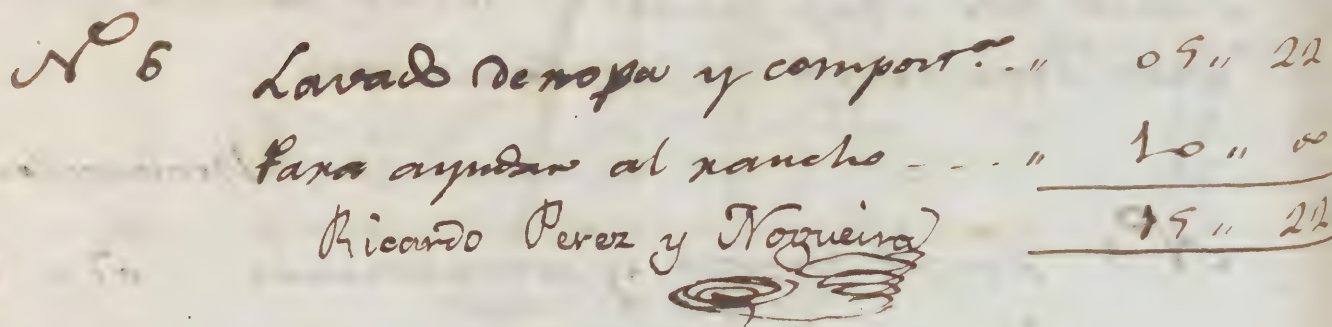 Nº 6 Lavado de ropa y compostª.. " 05 " 22
Para ayudar al rancho - . . . " 10 " 00
Ricardo Perez y Nogueira 15 " 22